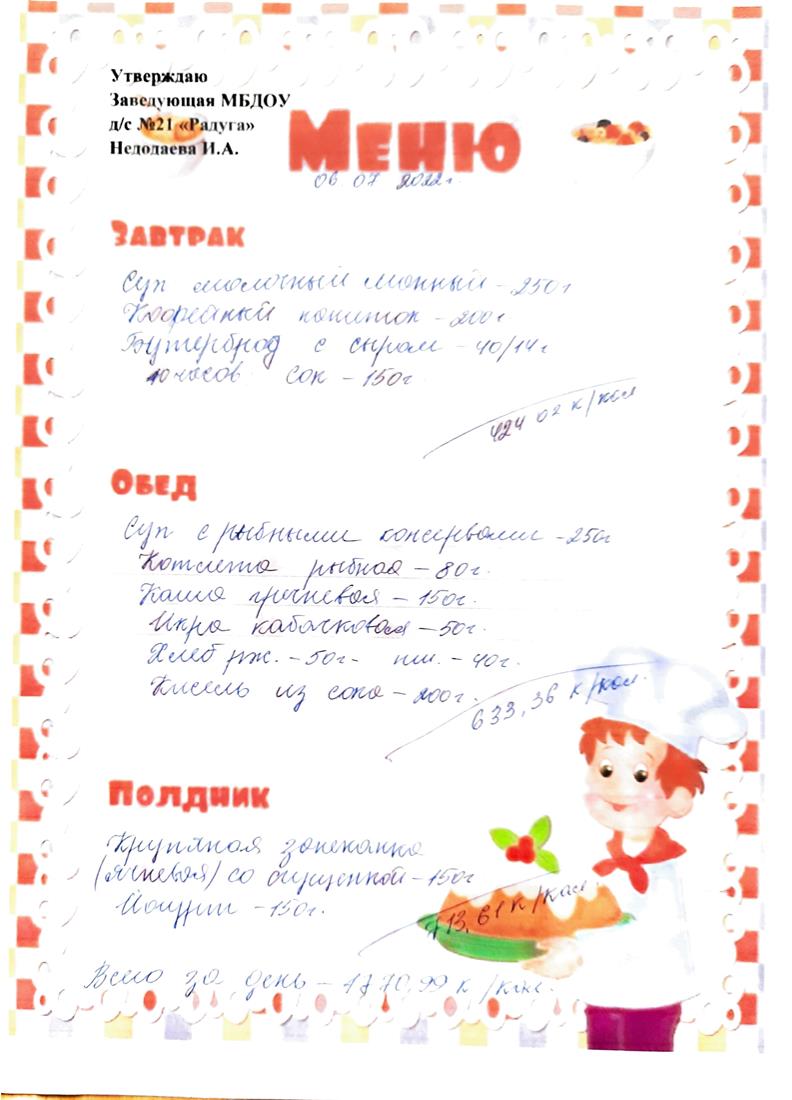 Утверждаю
Заведующая МБДОУ
д/с №21 «Радуга»
Недодаева И.А.
Меню
06 07 2022г.
Завтрак
Суп молочный манный – 250г
Кофейный напиток – 200г
Бутерброд с сыром – 40/14г
10 часов сок – 150г.
424 02 к/кал
Обед
Суп с рыбными консервами – 250г
Котлета рыбная – 80г.
Каша гречневая – 150г.
Икра кабачковая – 50г.
Хлеб рж. – 50г. пш. – 40г.
Кисель из сока – 200г.
633,36 к/кал.
Полдник
Крупяная запеканка
(ячневая) со сгущенкой – 150г
Йогурт – 150г.
713,61 к/кал.
Всего за день – 1770,99 к/кал.